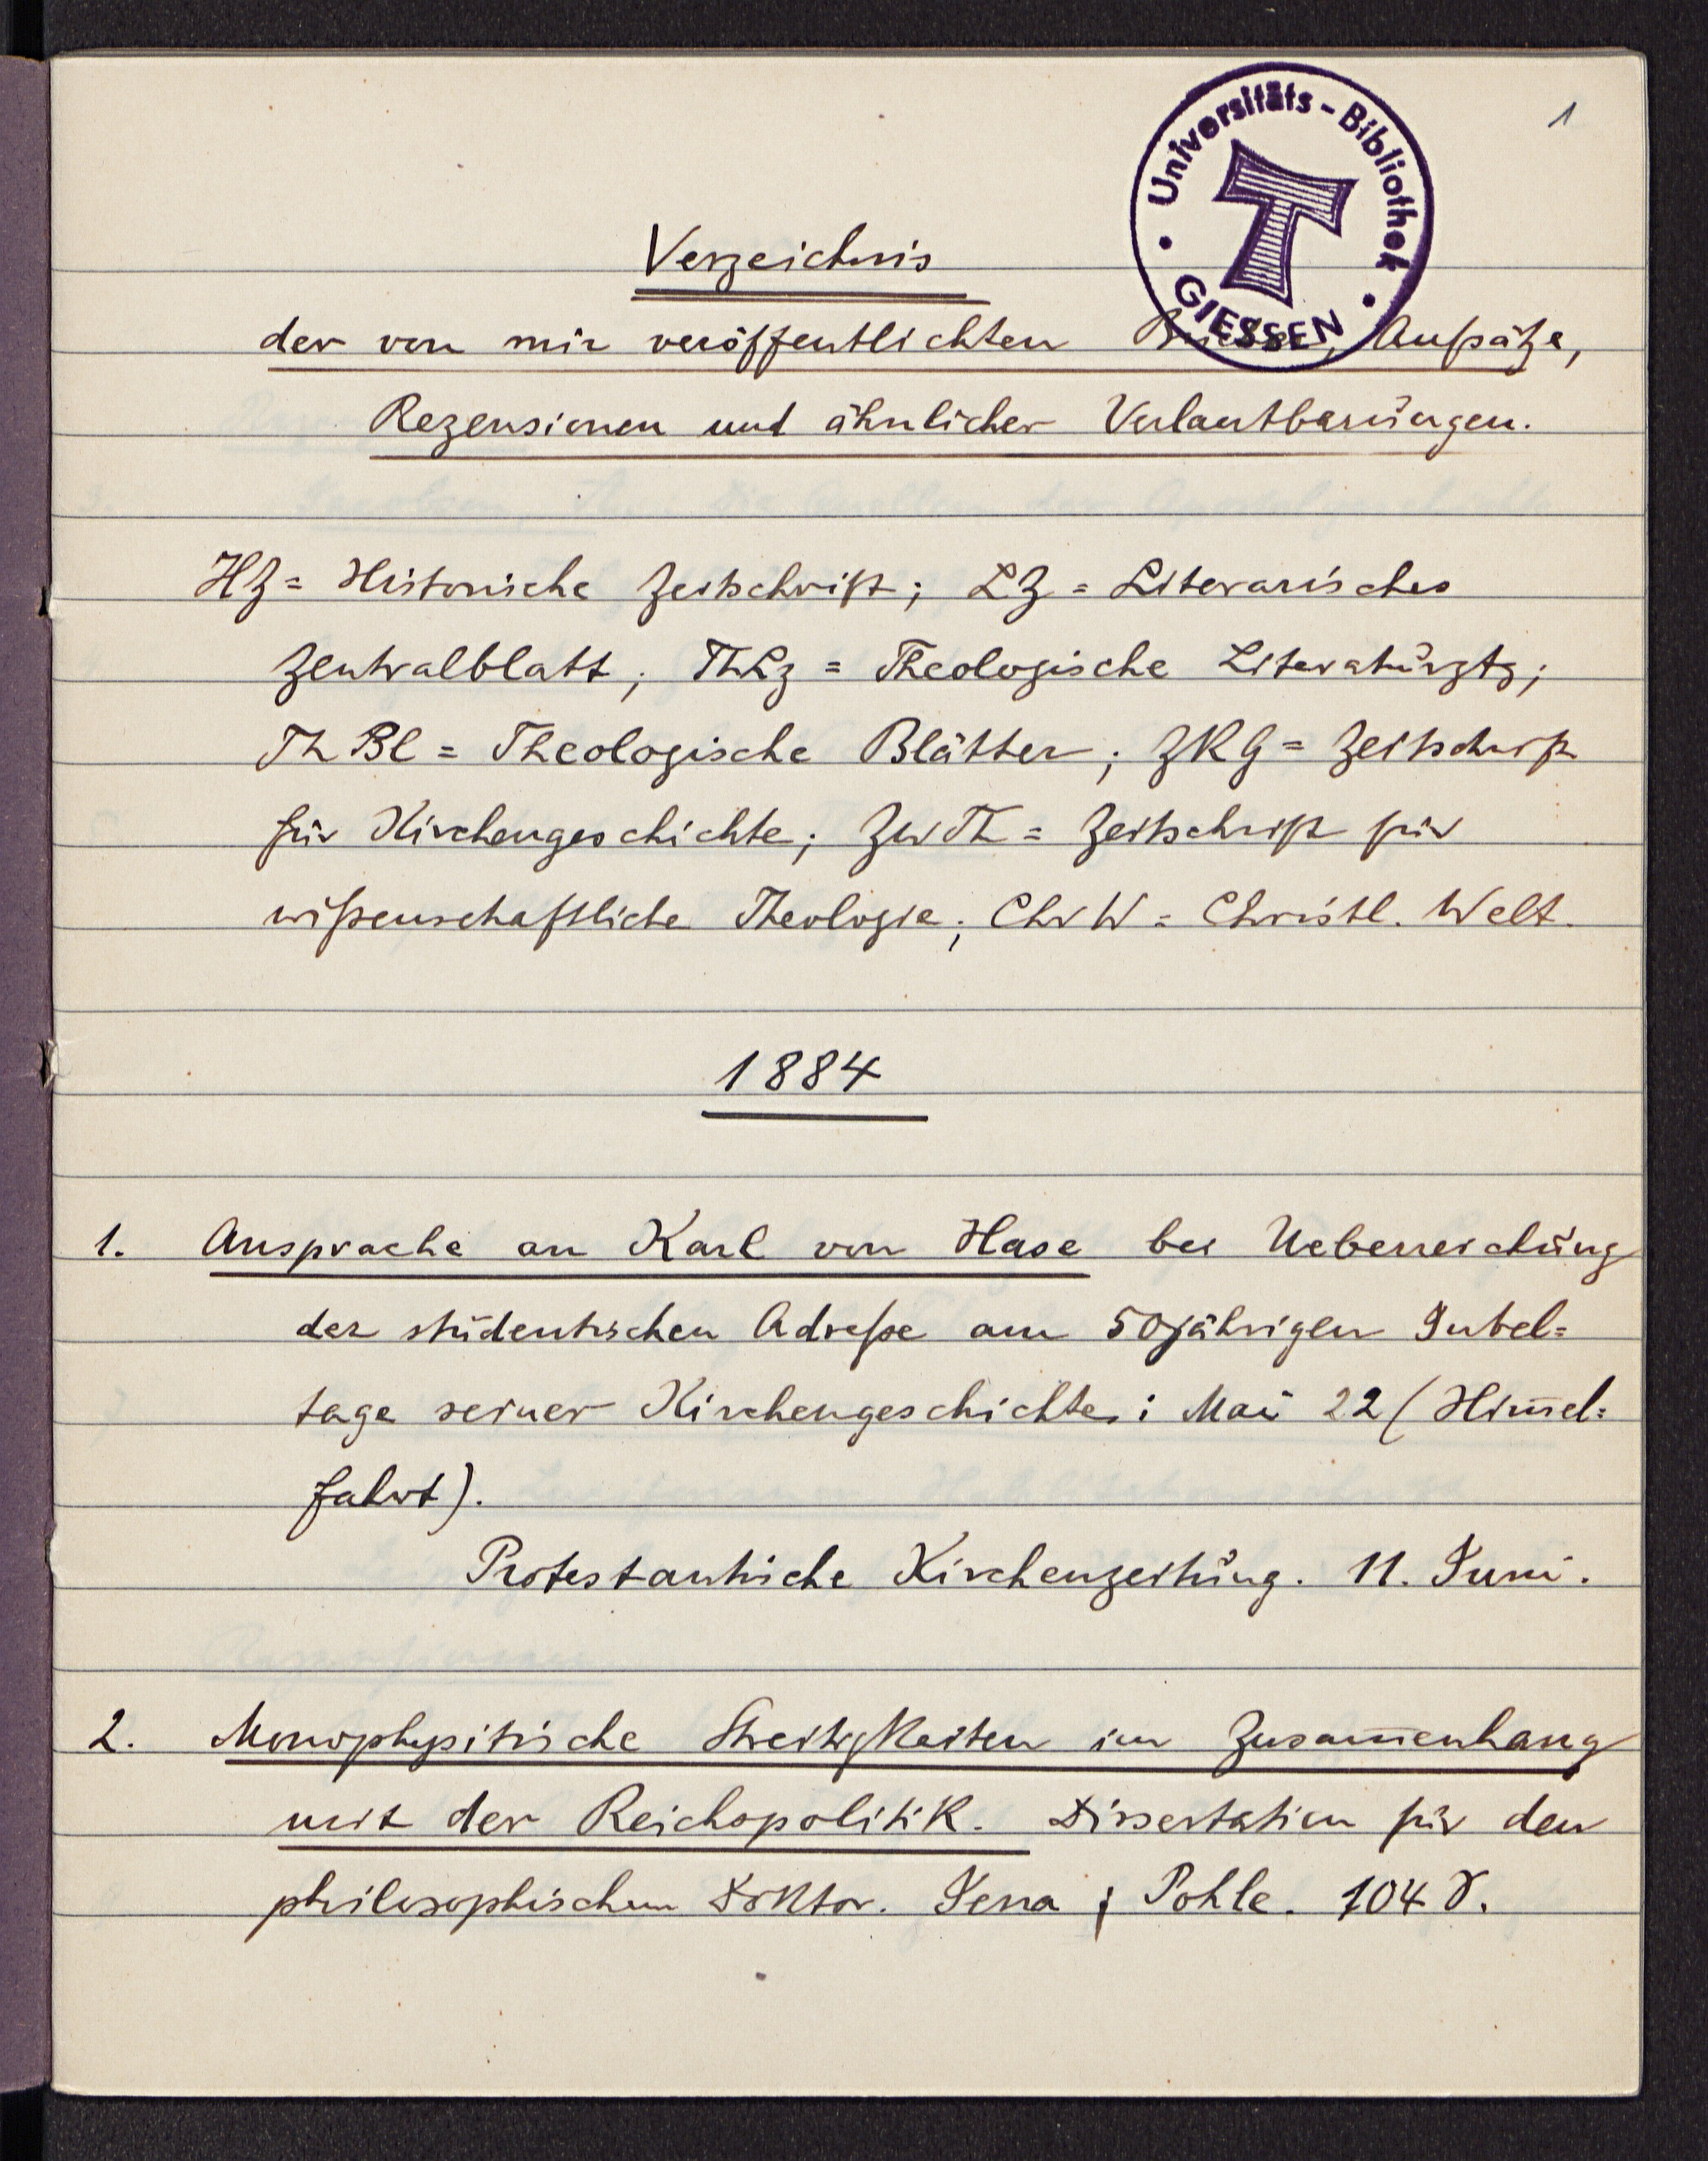 1
Universitäts-Bibliothek
GIESSEN
Verzeichnis
der von mir veröffentlichten Bücher, Aufsätze,
Rezensionen und ähnlicher Verlautbarungen.
HZ = Historische Zeitschrift; LZ = Literarisches
Zentralblatt; ThLz = Theologische Literaturztg;
ThBl = Theologische Blätter; ZKG = Zeitschrift
für Kirchengeschichte; ZwTh = Zeitschrift für
wißenschaftliche Theologie; ChrW = Christl. Welt.
1884
1. Ansprache an Karl von Hase bei Ueberreichung
der studentischen Adreße am 50jährigen Jubel=
tage seiner Kirchengeschichte: Mai 22 (Him̅el=
fahrt).
Protestantische Kirchenzeitung. 11. Juni.
2. Monophysitische Streitigkeiten im Zusam̅enhang
mit der Reichspolitik. Dissertation für den
philosophischen Doktor. Jena; Pohle. 104 S.